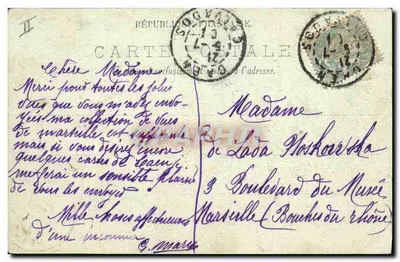 II
RÉPUBLIQUE FRANÇAISE
CARTE POSTALE
CAEN
CALVADOS
Chère Madame
Merci pour toutes les jolies
vues que vous m'avez envo-
yées ma collection de vues
de marseille est
mais si vous désirez encore
quelques cartes de Caen
me ferai un sensible plaisir
de vous les envoyer
Mille choses affectueuses
d'une inconnue
Madame
de Lada
3 Boulevard du Musée
Marseille (Bouches du rhône)